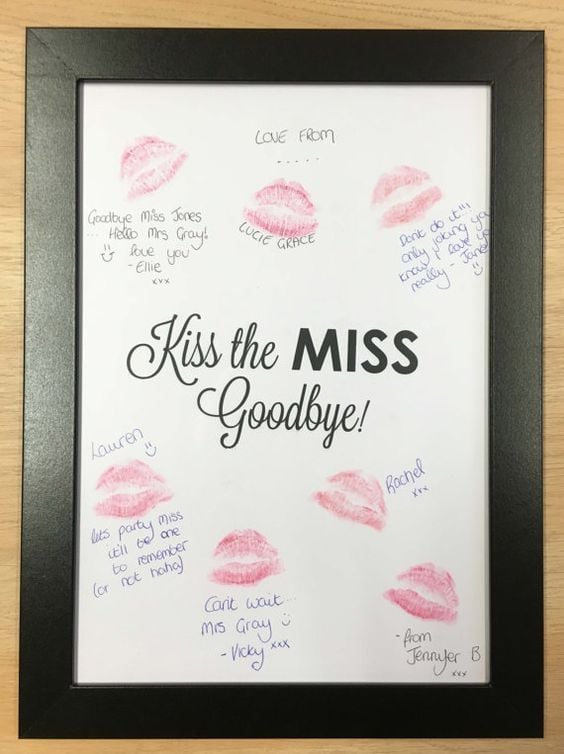 LOVE FROM
.....
Goodbye Miss Jones
... Hello Mrs Gray!
love you
- Ellie
xxx
LUCIE GRACE
Dont do it!!!
only joking ya
know I love ya
really - Jane
Kiss the MISS
Goodbye!
Lauren
lets party miss
it'll be one
to remember
(or not haha)
Rachel
xxx
Can't wait...
Mrs Gray
- Vicky xxx
- from
Jennyfer B
xxx